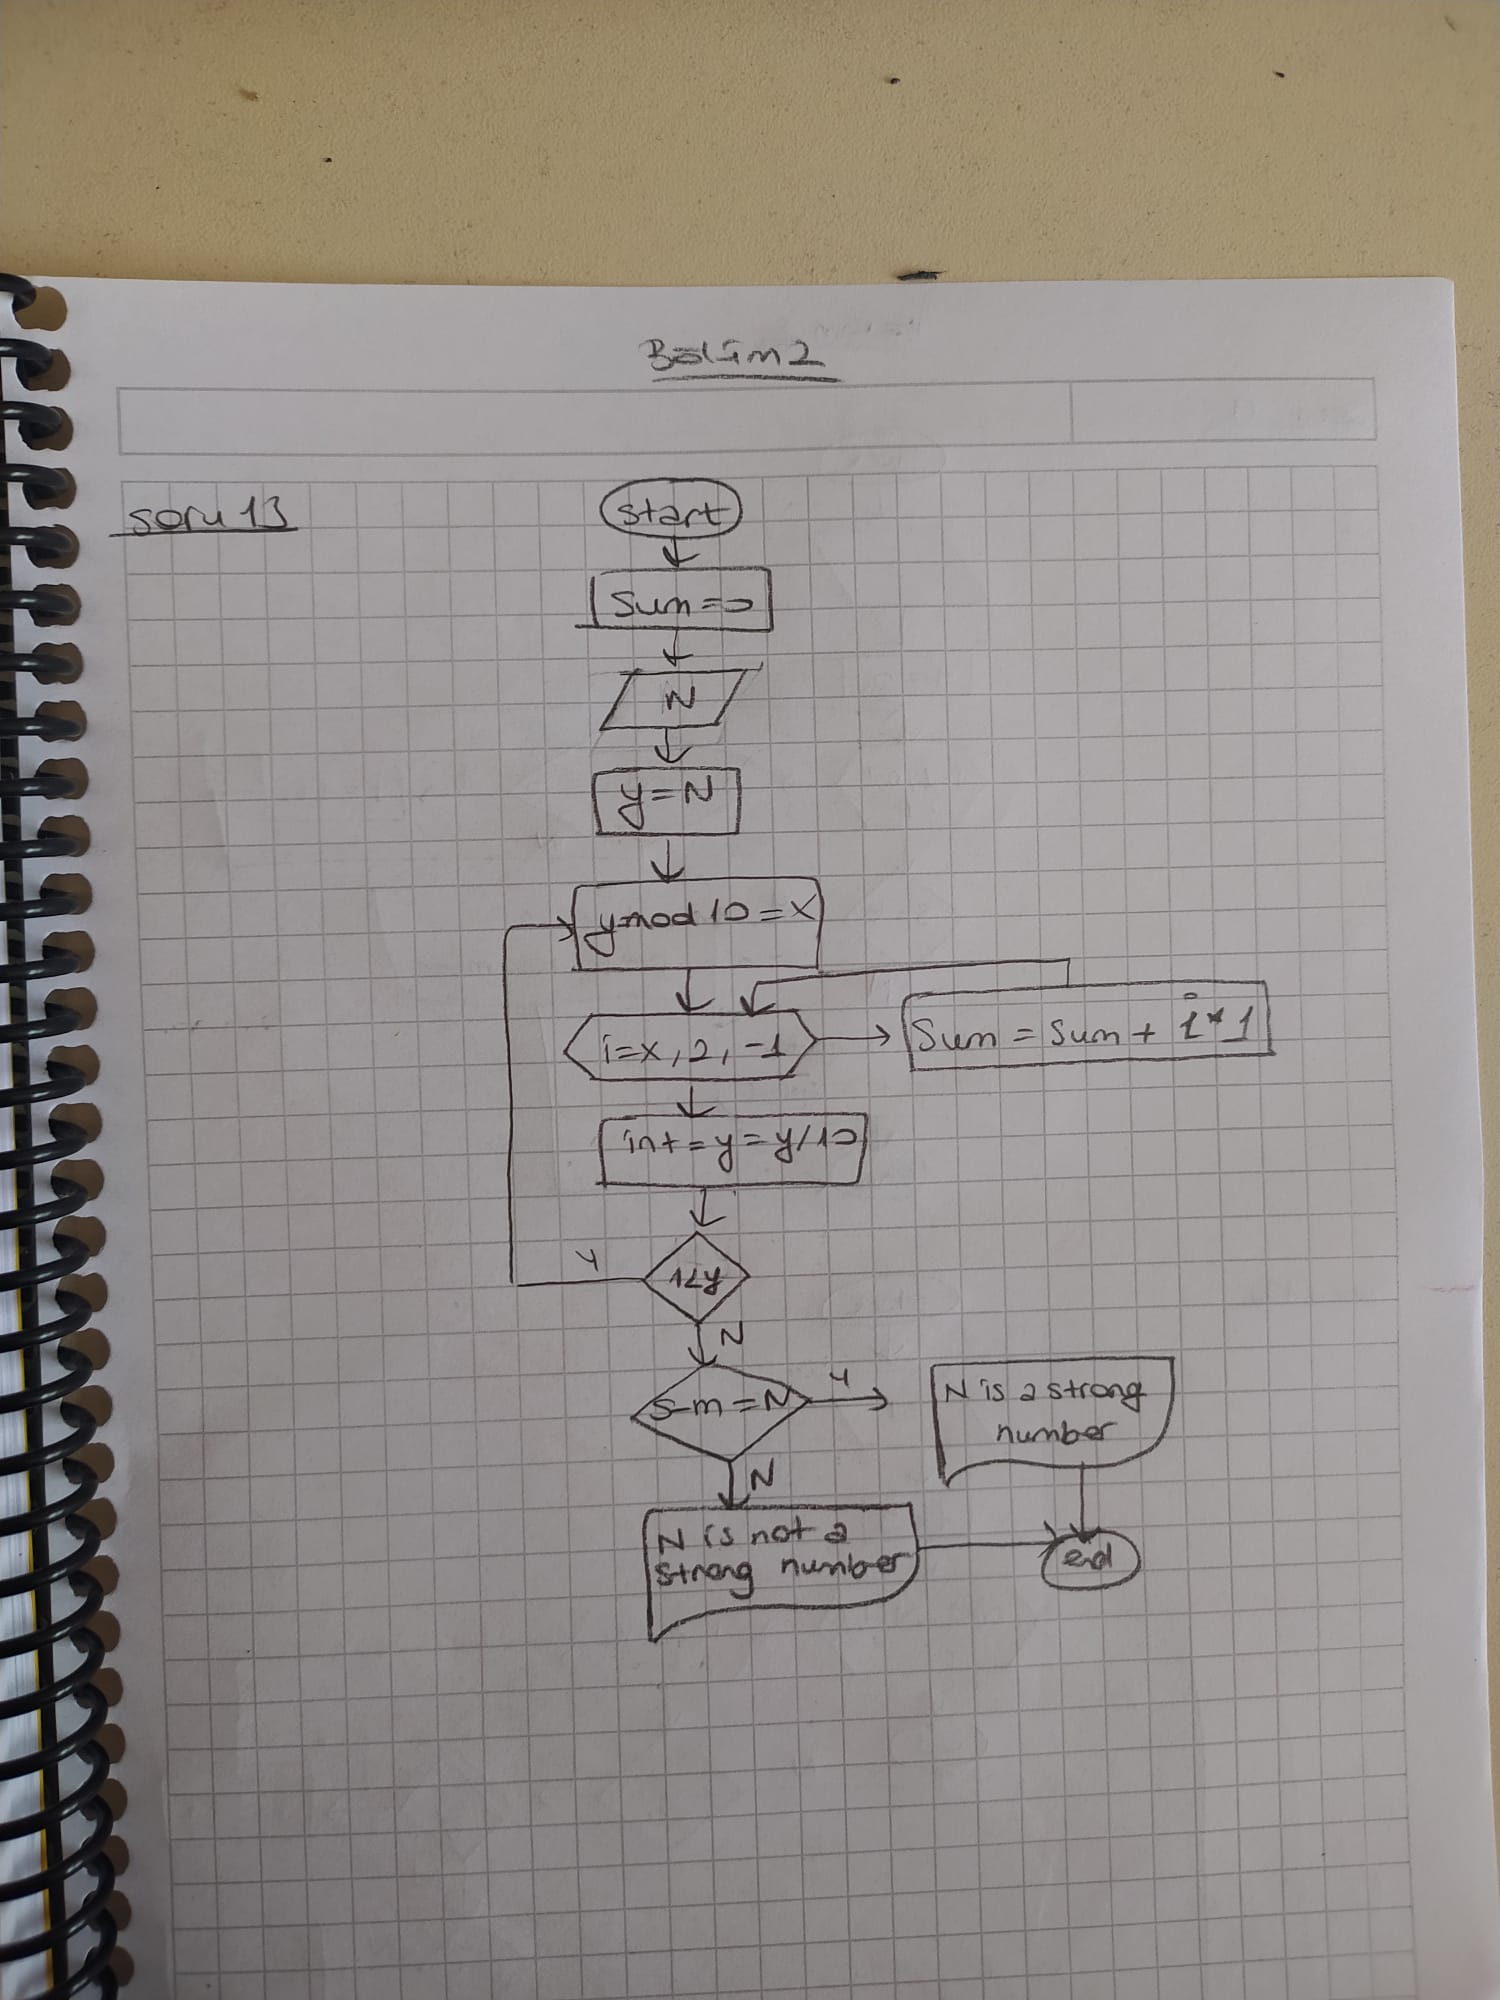 Bölüm 2
soru 13
start
sum=0
N
y=N
y mod 10 = x
i=x, 2, -1
Sum = Sum + i*1
int = y = y/10
1<y
Y
N
sum = N
Y
N is a strong
number
N
N is not a
strong number
end